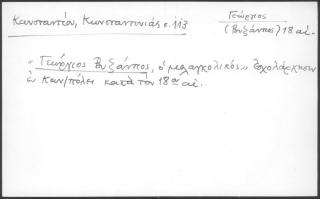 Κωνσταντίου, Κωνσταντινιάς σ. 113
Γεώργιος
(Βυζάντιος) 18 αἰ.
"Γεώργιος Βυζάντιος, ὁ μελαγχολικός" ἐσχολάρχησεν
ἐν Κων/πόλει κατὰ τὸν 18ον αἰ.